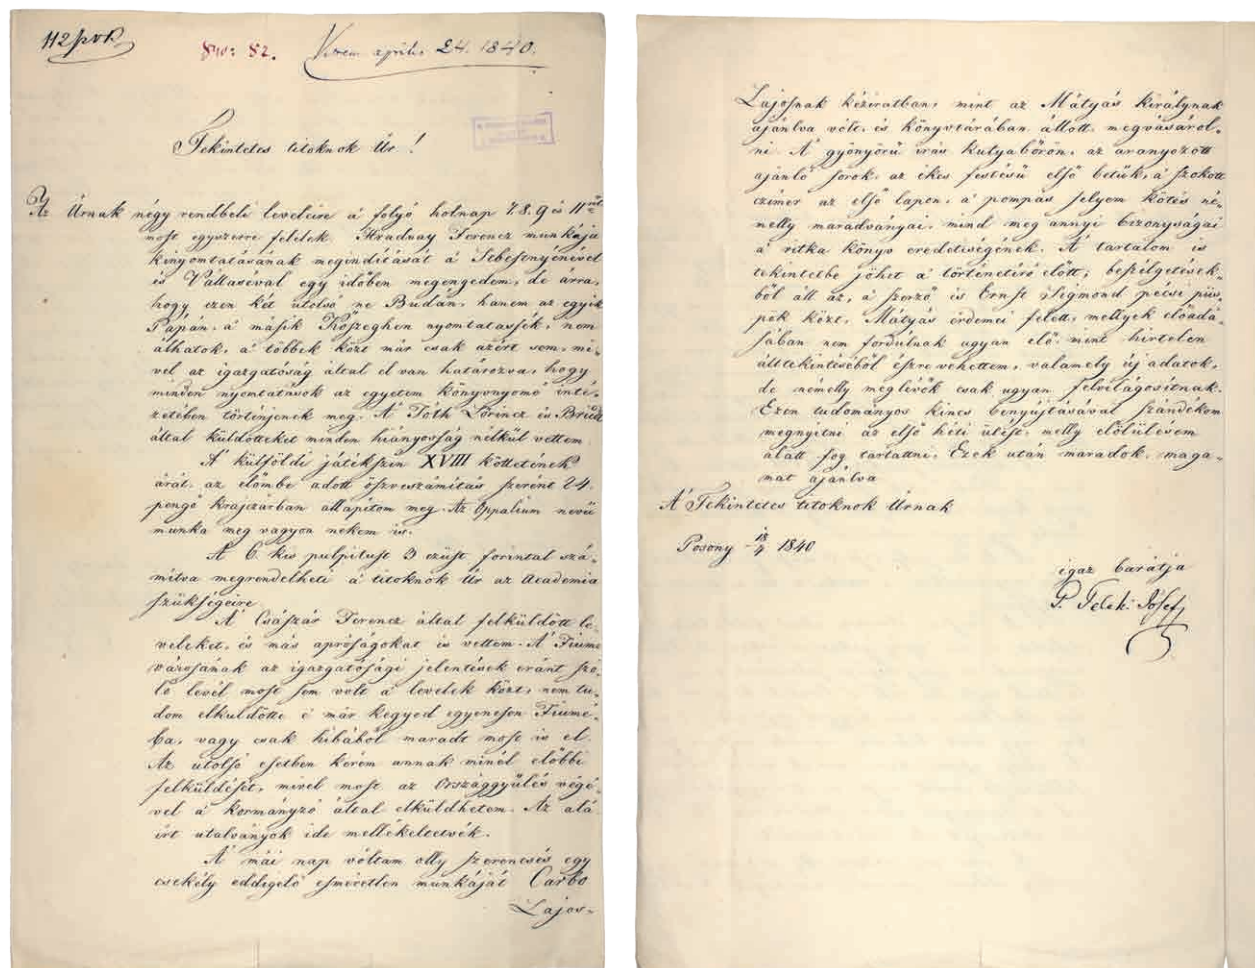 112
840: 82.
Vettem április 24. 1840.
Tekintetes titoknok Úr!
Az Úrnak négy rendbeli leveleire á folyó holnap 7. 8. 9 és 11
most egyszerre felelek. Ferencz munkája
kinyomtatásának megindítását á Sebestyénével
és Vállaséval egy időben megengedem, de árra,
hogy ezen két utolsó ne Budán, hanem az egyik
Pápán, á másik Kőszeghen nyomtatassék, nem
álhatok, á többek közt már csak azért sem, mi-
vel az igazgatóság által el van határozva, hogy
minden nyomtatások az egyetem könyvnyomó inté-
zetében történjenek meg. Á Tóth Lőrincz és
által küldötteket minden hiányosság nélkül vettem.
Á külföldi játékszin XVIII köttetének
árát, az előmbe adott öszveszámitás szerént 24.
pengő krajzárban állapítom meg. Az Oppalium nevű
munka meg vagyon nekem is.
Á 6. kis pulpitust 3 ezüst forintal szá-
mitva megrendelheti á titoknok Úr az Academia
szükségeire
Á Császár Ferencz által felküldött le-
veleket, és más apróságokat is vettem. Á Fiume
városának az igazgatósági jelentések eránt szó-
ló levél most sem volt á levelek közt, nem tu-
dom elküldötte é már kegyed egyenesen Fiumé-
ba, vagy csak hibából maradt most is el
Az utolsó esetben kérem annak minél előbbi
felküldését, mivel most az Országgyülés végé-
vel á kormányzó által elküldhetem. Az alá-
irt utalványok ide mellékeltetvék.
Á mái nap vóltam olly szerencsés egy
csekély eddigelő esméretlen munkáját Carbo
Lajos-
Lajosnak kéziratban, mint az Mátyás királynak
ajánlva vólt, és könyvtárában állott, megvásárol-
ni. Á gyönyörű irás kutyabőrön, az aranyozott
ajánló sorok, az ékes festésű első betűk, á szokott
czimer az első lapon, á pompás selyem kötés né-
melly maradványai, mind meg annyi bizonyságai
á ritka könyv eredetiségének. Á tartalom is
tekintetbe jöhet á történetiró előtt; beszélgetések-
ből áll az, á szerző és Ernst Sigmond pécsi püs-
pök közt, Mátyás érdemei felett, mellyek előadá-
sában nem fordúlnak ugyan elő, mint hirtelen
általtekintéséből észre vehettem, valamely új adatok,
de némelly meglévők csak ugyan felvilágosítnak.
Ezen tudományos kincs benyújtásával szándékom
megnyitni az első héti ülést, melly előlülésem
alatt fog tartattni. Ezek után maradok, maga-
mat ajánlva
Á Tekintetes titoknok Úrnak
Posony 18/4 1840
igaz barátja
Teleki Jósef